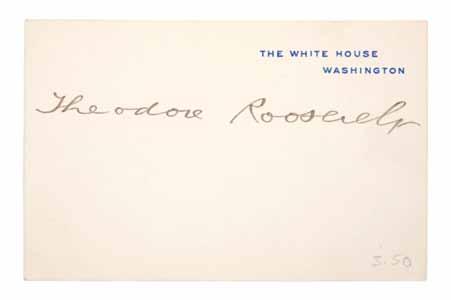 THE WHITE HOUSE
WASHINGTON
Theodore Roosevelt
3.50